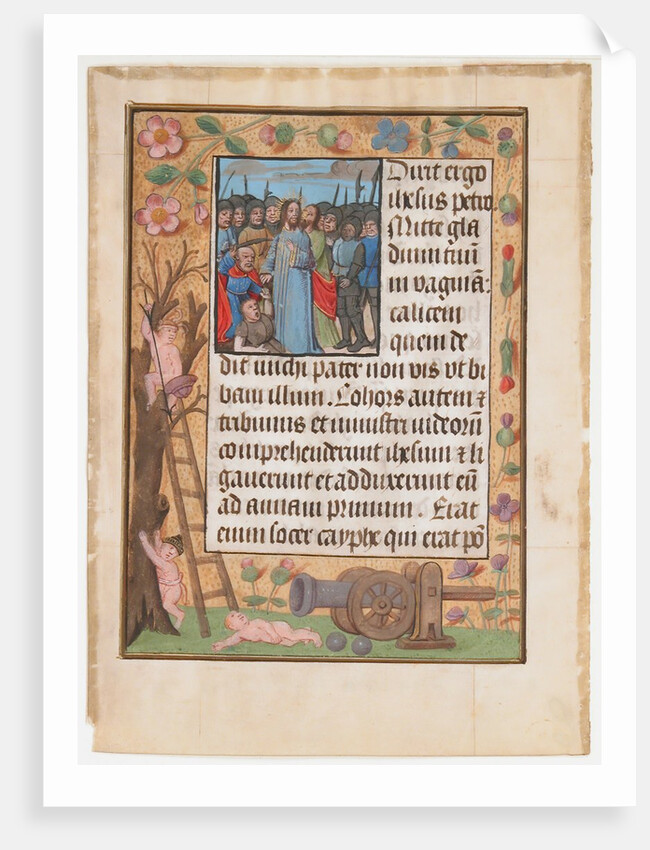 Dixit ergo
ihesus petro
Mitte gla
dium tuū
in vaginā:
calicem
quem de
dit michi pater non vis vt bi
bam illum. Cohors autem ⁊
tribunus et ministri iudeorū
comprehenderunt ihesum ⁊ li
gauerunt et adduxerunt eū
ad annam primum. Erat
enim socer cayphe qui erat pō